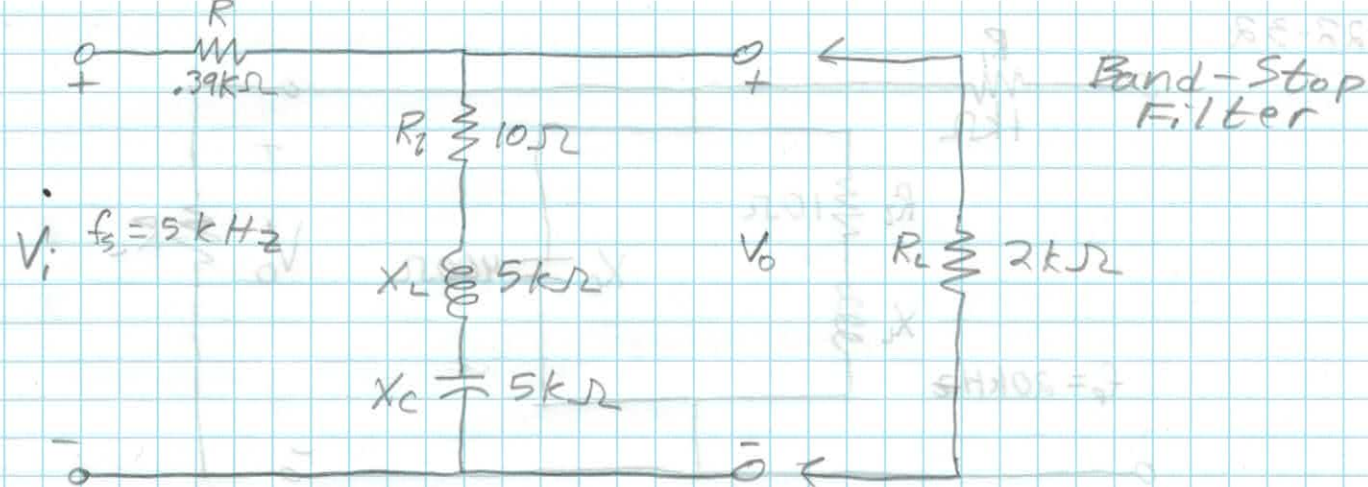 R
.39kΩ
+
+
Band-Stop
Filter
Rl 10Ω
Vi fs = 5 kHz
Vo
RL 2kΩ
XL 5kΩ
XC 5kΩ
-
-